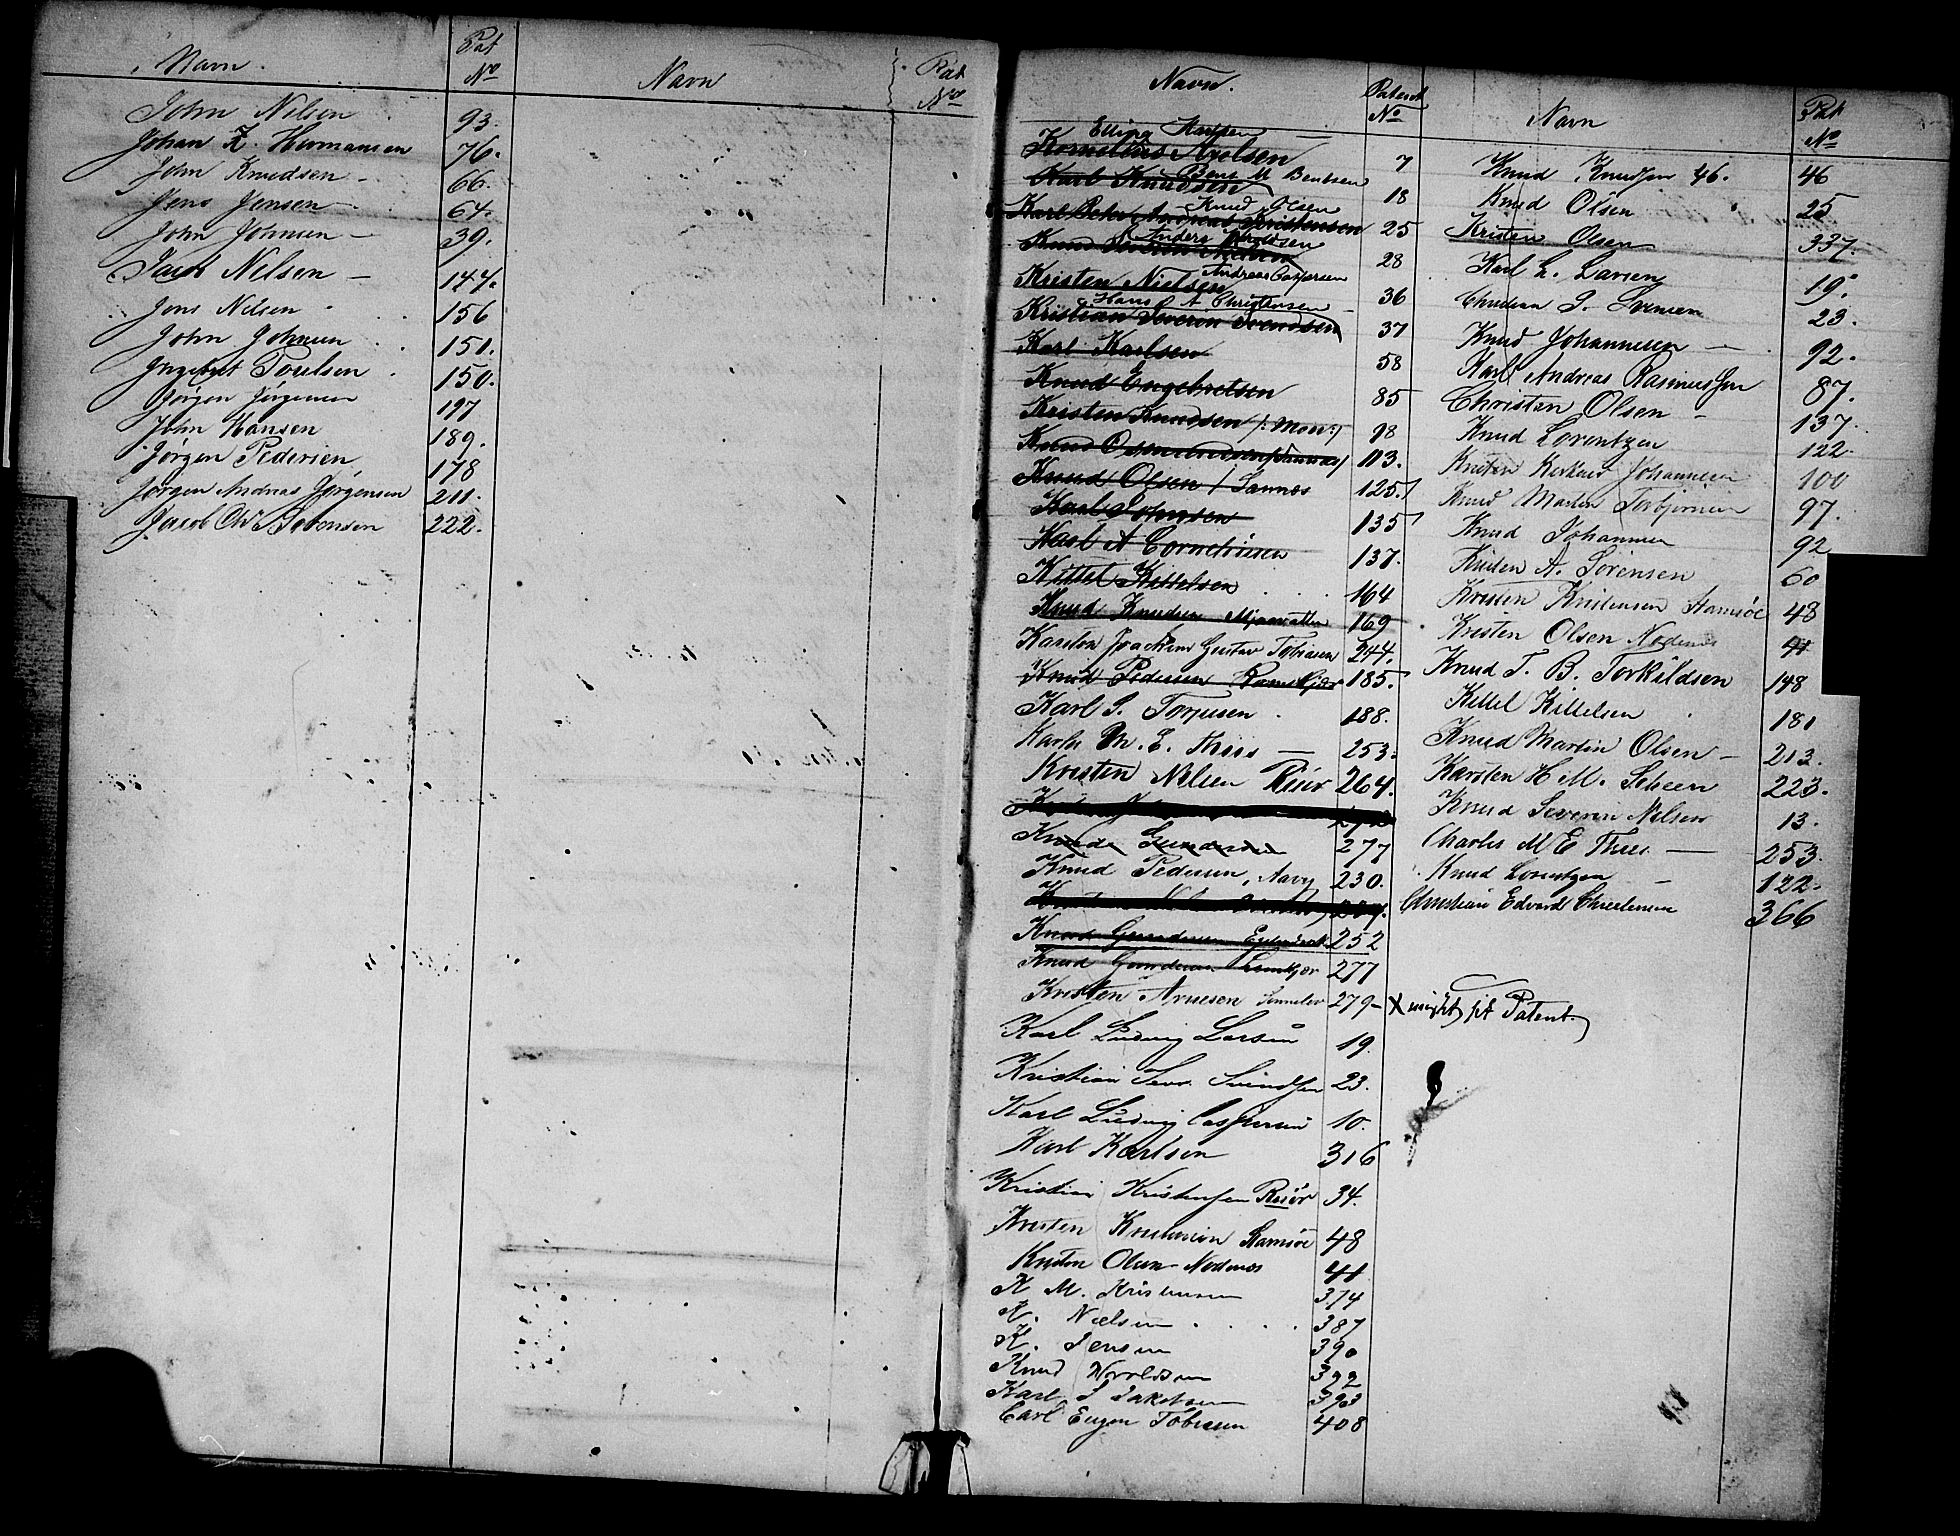 Navn. Pat No
John Nilsen 93.
Johan Z. Hermansen 76.
John Knudsen - 66.
Jens Jensen - 64.
John Johnsen - 39.
Nilsen - 147.
Jens Nilsen 156
John Johnsen 151.
150.
Jørgen Jørgensen 197
John Hansen 189.
Jørgen Pedersen 178
Jørgen Andreas Jørgensen 211.
Jacob Chr Sørensen 222.
Navn Pat No
Navn. Patent No
Elling
Kornelius Axelsen 7
Bent M Bentsen
Karl Knudsen 18
Knud Olsen
Karl Peter Andreas Kristensen 25
Anders
Knud Severin 28
Andreas Caspersen
Kristen Nielsen 36
Hans A Christensen
Kristian Severin Svendsen 37
Karl Karlsen 58
Knud Engebretsen 85
Kristen Knudsen 98
Knud 113.
Knud Olsen / Sannes 125.
Karl Johnsen 135
Karl A Corneliusen 137.
Kittel Kittelsen 164
Knud Knudsen Mjaavatten 169
Karsten Joachim Gustav Tobiasen 244.
Knud Pedersen 185.
Karl S. Torjusen 188.
M. E. Thiis - 253.
Kristen Nilsen Risør 264.
Knud Gundersen 277
Knud Pedersen, 230.
Knud Gundersen 252
Knud Gundersen 277
Kristen Arnesen 279-
Karl Ludvig Larsen 19.
Kristian Sever. Svendsen 23.
Karl Ludvig Caspersen 10.
Karl Karlsen 316
Kristian Kristensen Risør 34.
Kristen Kristensen Stamsøe 48
Kristen Olsen Nedenes 41
K M. Kristensen 374
K. Nielsen . . . . 387
K. Jensen 390
Knud 392
Karl J Jakobsen 393
Carl Eugen Tobiasen 408
Navn Pat No
Knud Knudsen 46. 46
Knud Olsen 25
Kristen Olsen 337.
Karl L. Larsen 19.
Christian S. 23.
Knud Johannesen - 92.
Karl Andreas Rasmussen 87.
Christen Olsen - 137.
Knud Lorentzen 122.
Kristen Johannesen 100
Knud Martin Torbjørnsen 97.
Knud Johannesen 92
Kristen A. Sørensen 60
Kristen Kristensen Stamsøe 48
Kristen Olsen Nedenes 41
Knud T. B. Torkildsen 148
Kittel Kittelsen 181
Knud Martin Olsen - 213.
Karsten H. M. Scheen 223.
Knud Severin Nilsen 13.
Charles M E Thiis - 253.
Knud Lorentzen - 122.
Christian Edvard Christensen 366
x Patent.